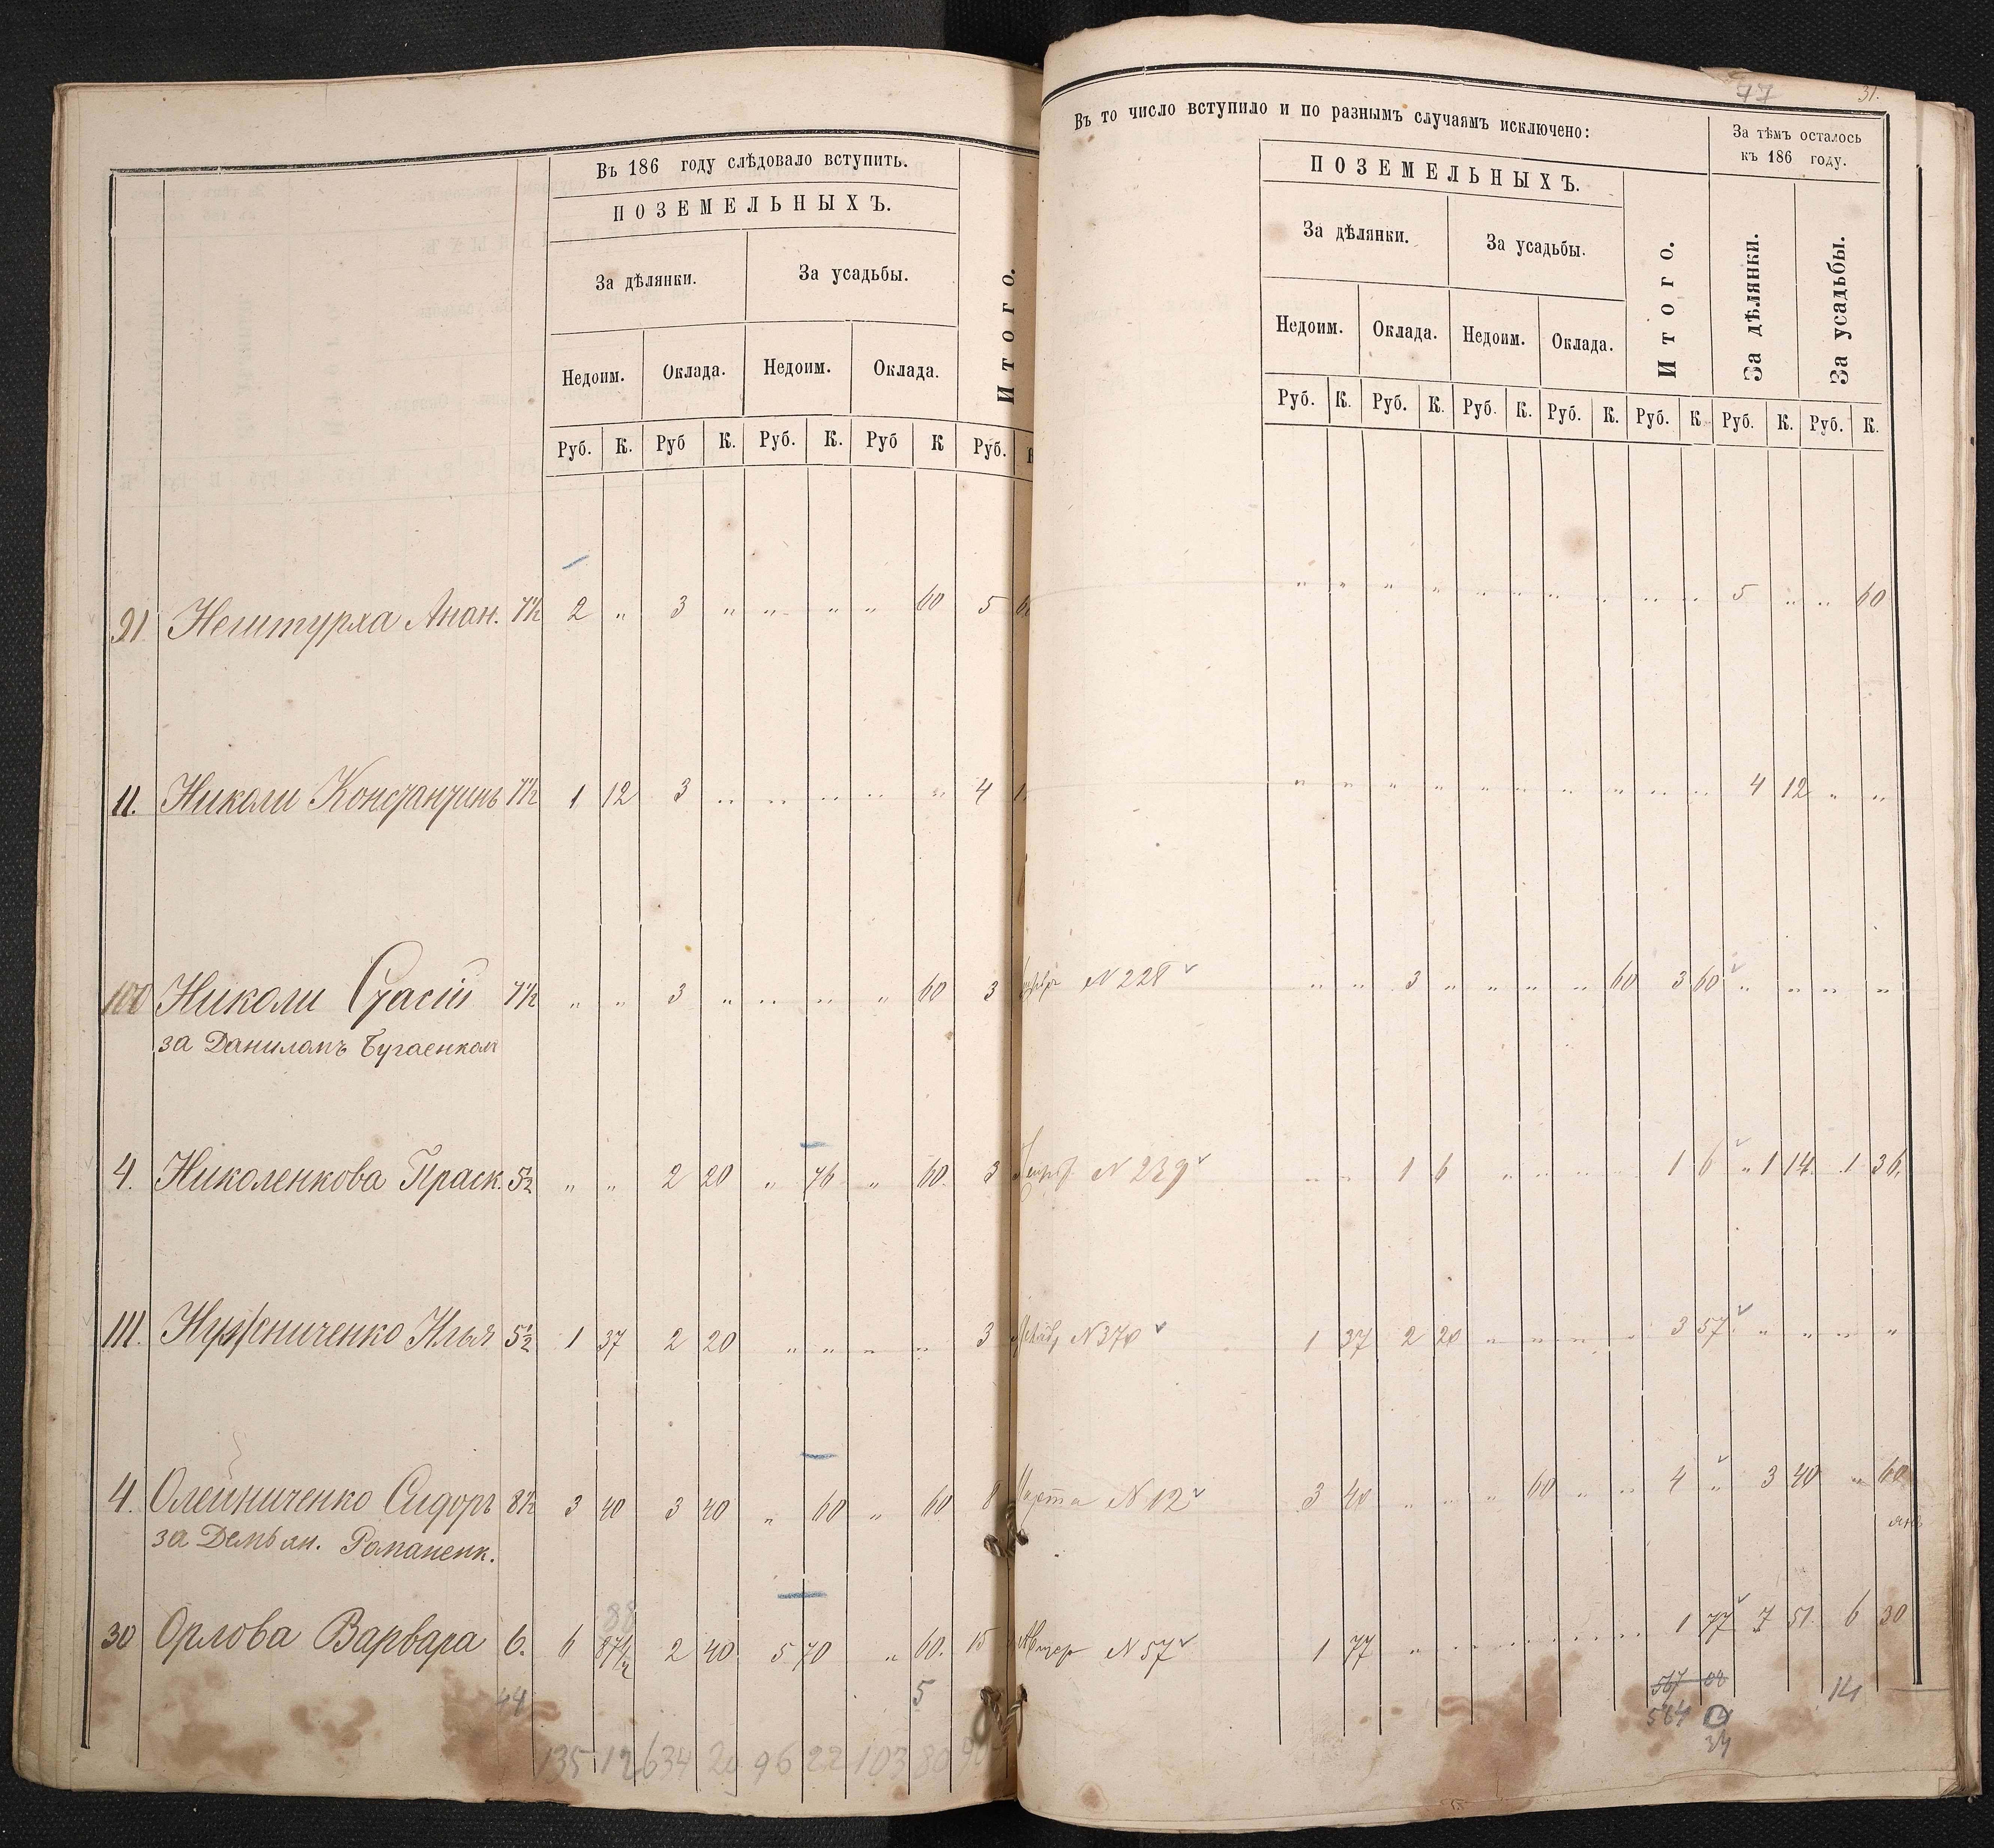 Въ 186 году слѣдовало вступить.
ПОЗЕМЕЛЬНЫХЪ.
За дѣлянки. За усадьбы.
Итого.
Недоим. Оклада. Недоим. Оклада.
Руб. К. Руб К. Руб. К. Руб К Руб.
91 Анан. 7½ 2 „ 3 „ „ „ „ 60 5
11. Николи Константинъ 7½ 1 12 3 „ „ „ „ „ 4
100 Николи Стасій 7½ „ „ 3 „ „ „ „ 60 3
за Даниломъ Бугаенком
4. Николенкова Праск. 5½ „ „ 2 20 „ 76 „ 60. 3
111. Нужниченко Илья 5½ 1 37 2 20 „ „ „ „ 3
4. Олейниченко Сидоръ 8½ 3 40 3 40 „ 60 „ 60 8
за Демьян. Романенк.
88
30 Орлова Варвара 6. 6 87½ 2 40 5 70 „ 60. 15
44 5
135 12 634 20 96 22 103 80
77 31.
Въ то число вступило и по разнымъ случаямъ исключено:
За тѣмъ осталось
къ 186 году.
ПОЗЕМЕЛЬНЫХЪ.
За дѣлянки. За усадьбы.
Итого. За дѣлянки. За усадьбы.
Недоим. Оклада. Недоим. Оклада.
Руб. К. Руб. К. Руб. К. Руб. К. Руб. К. Руб. К. Руб. К.
„ „ „ „ „ „ „ „ „ „ 5 „ „ 60
„ „ „ „ „ „ „ „ „ „ 4 12 „ „
N 228 „ „ 3 „ „ „ „ 60 3 60 „ „ „ „
N 239 „ „ 1 6 „ „ „ „ 1 6 1 14 1 36.
N 370 1 37 2 20 „ „ „ „ 3 57 „ „ „ „
Марта N 12 3 40 „ „ „ 60 „ „ 4 „ 3 40 „ 60
N 57 1 77 „ „ „ „ „ „ 1 77 7 51. 6 30
567 08 14
564
34